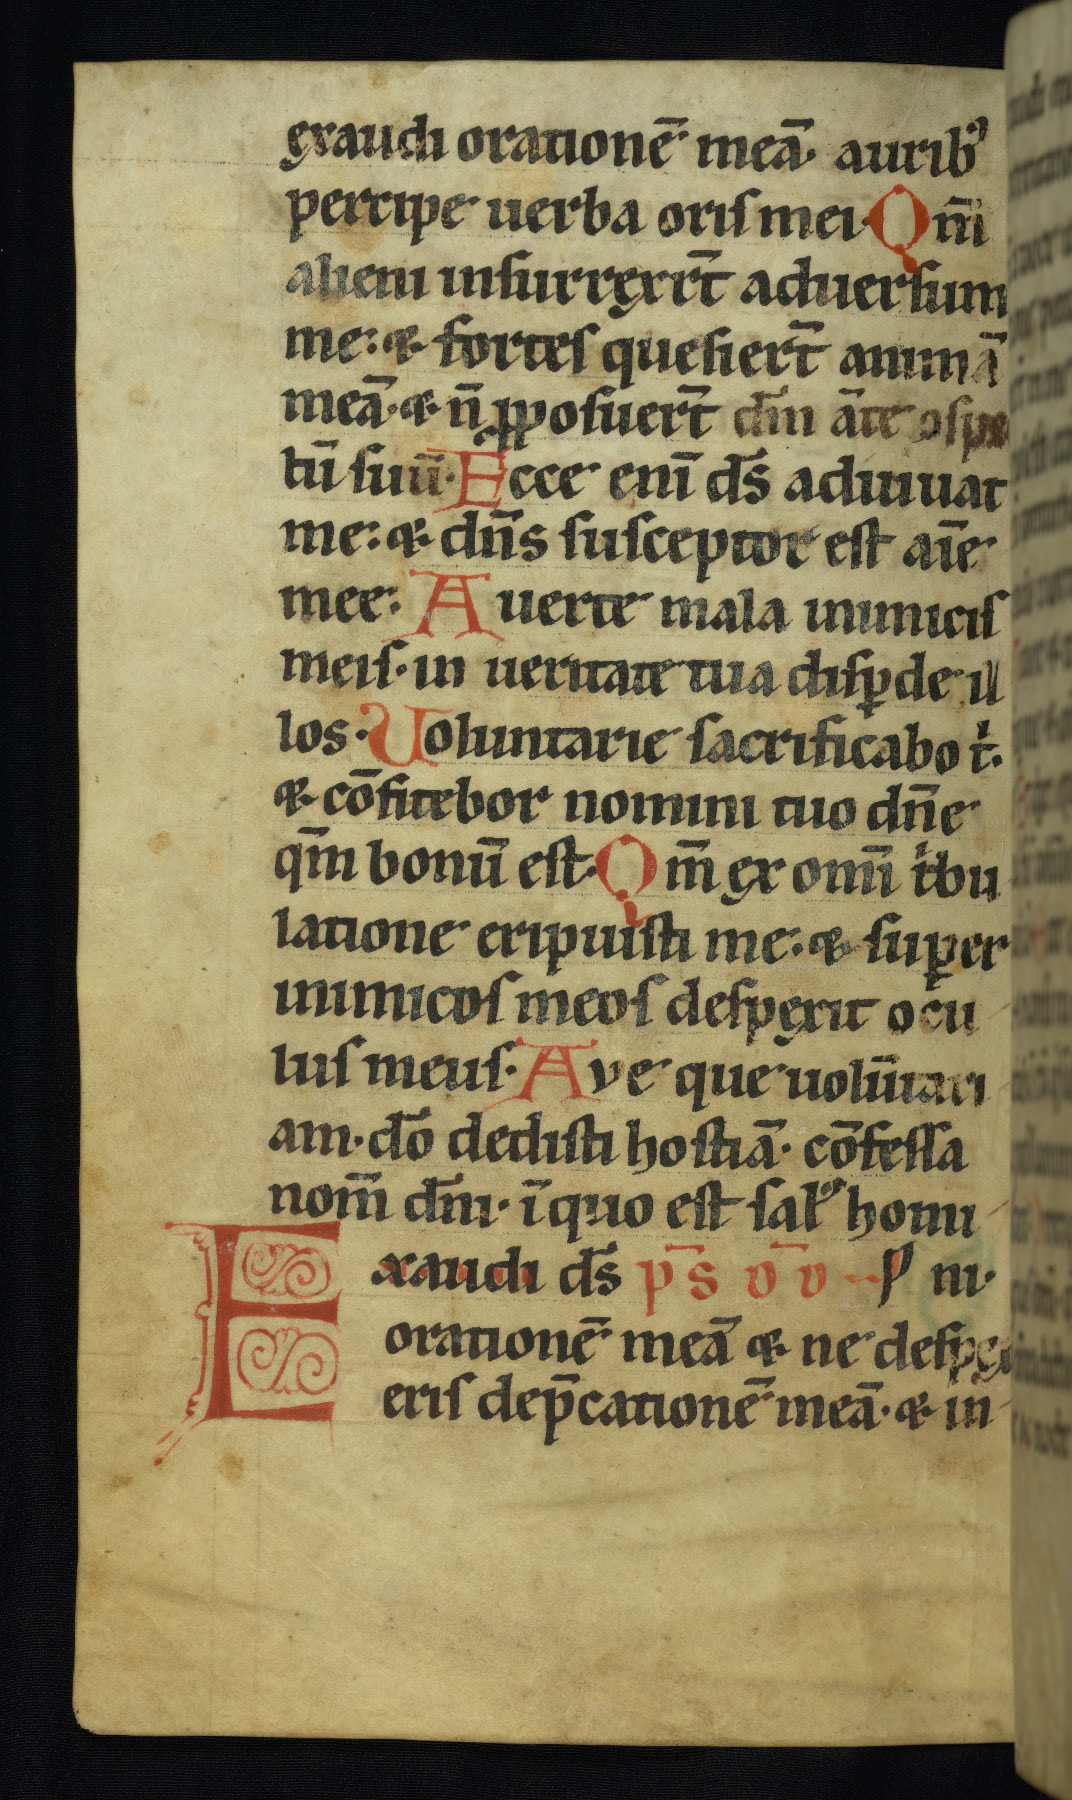 exaudi orationē meā. aurib9
percipe uerba oris mei. Qm̄
alieni insurrexer̄t aduersum
me: & fortes quesier̄t animā
meā. & n̄ ꝓposuer̄t dm̄ āte ↄspe
tū suū. Ecce eni̅ ds̄ adiuuat
me: & dn̄s susceptor est aīe
mee: Auerte mala inimicis
meis. in ueritate tua disꝑde il
los. Uoluntarie sacrificabo t.
& cōfitebor nomini tuo dn̄e
qm̄ bonū est. Qm̄ ex omi̅ tbu
latione eripuisti me: & suꝑer
inimicos meos despexit ocu
lus meus. Aye que uolūtari
am. do̅ dedisti hostiā. cōfessa
nom̄ dn̄i. ī quo est sal9 homi
Exaudi ds̄ ps̄ ni.
orationē meā & ne despex
eris dep̄cationē meā. & in